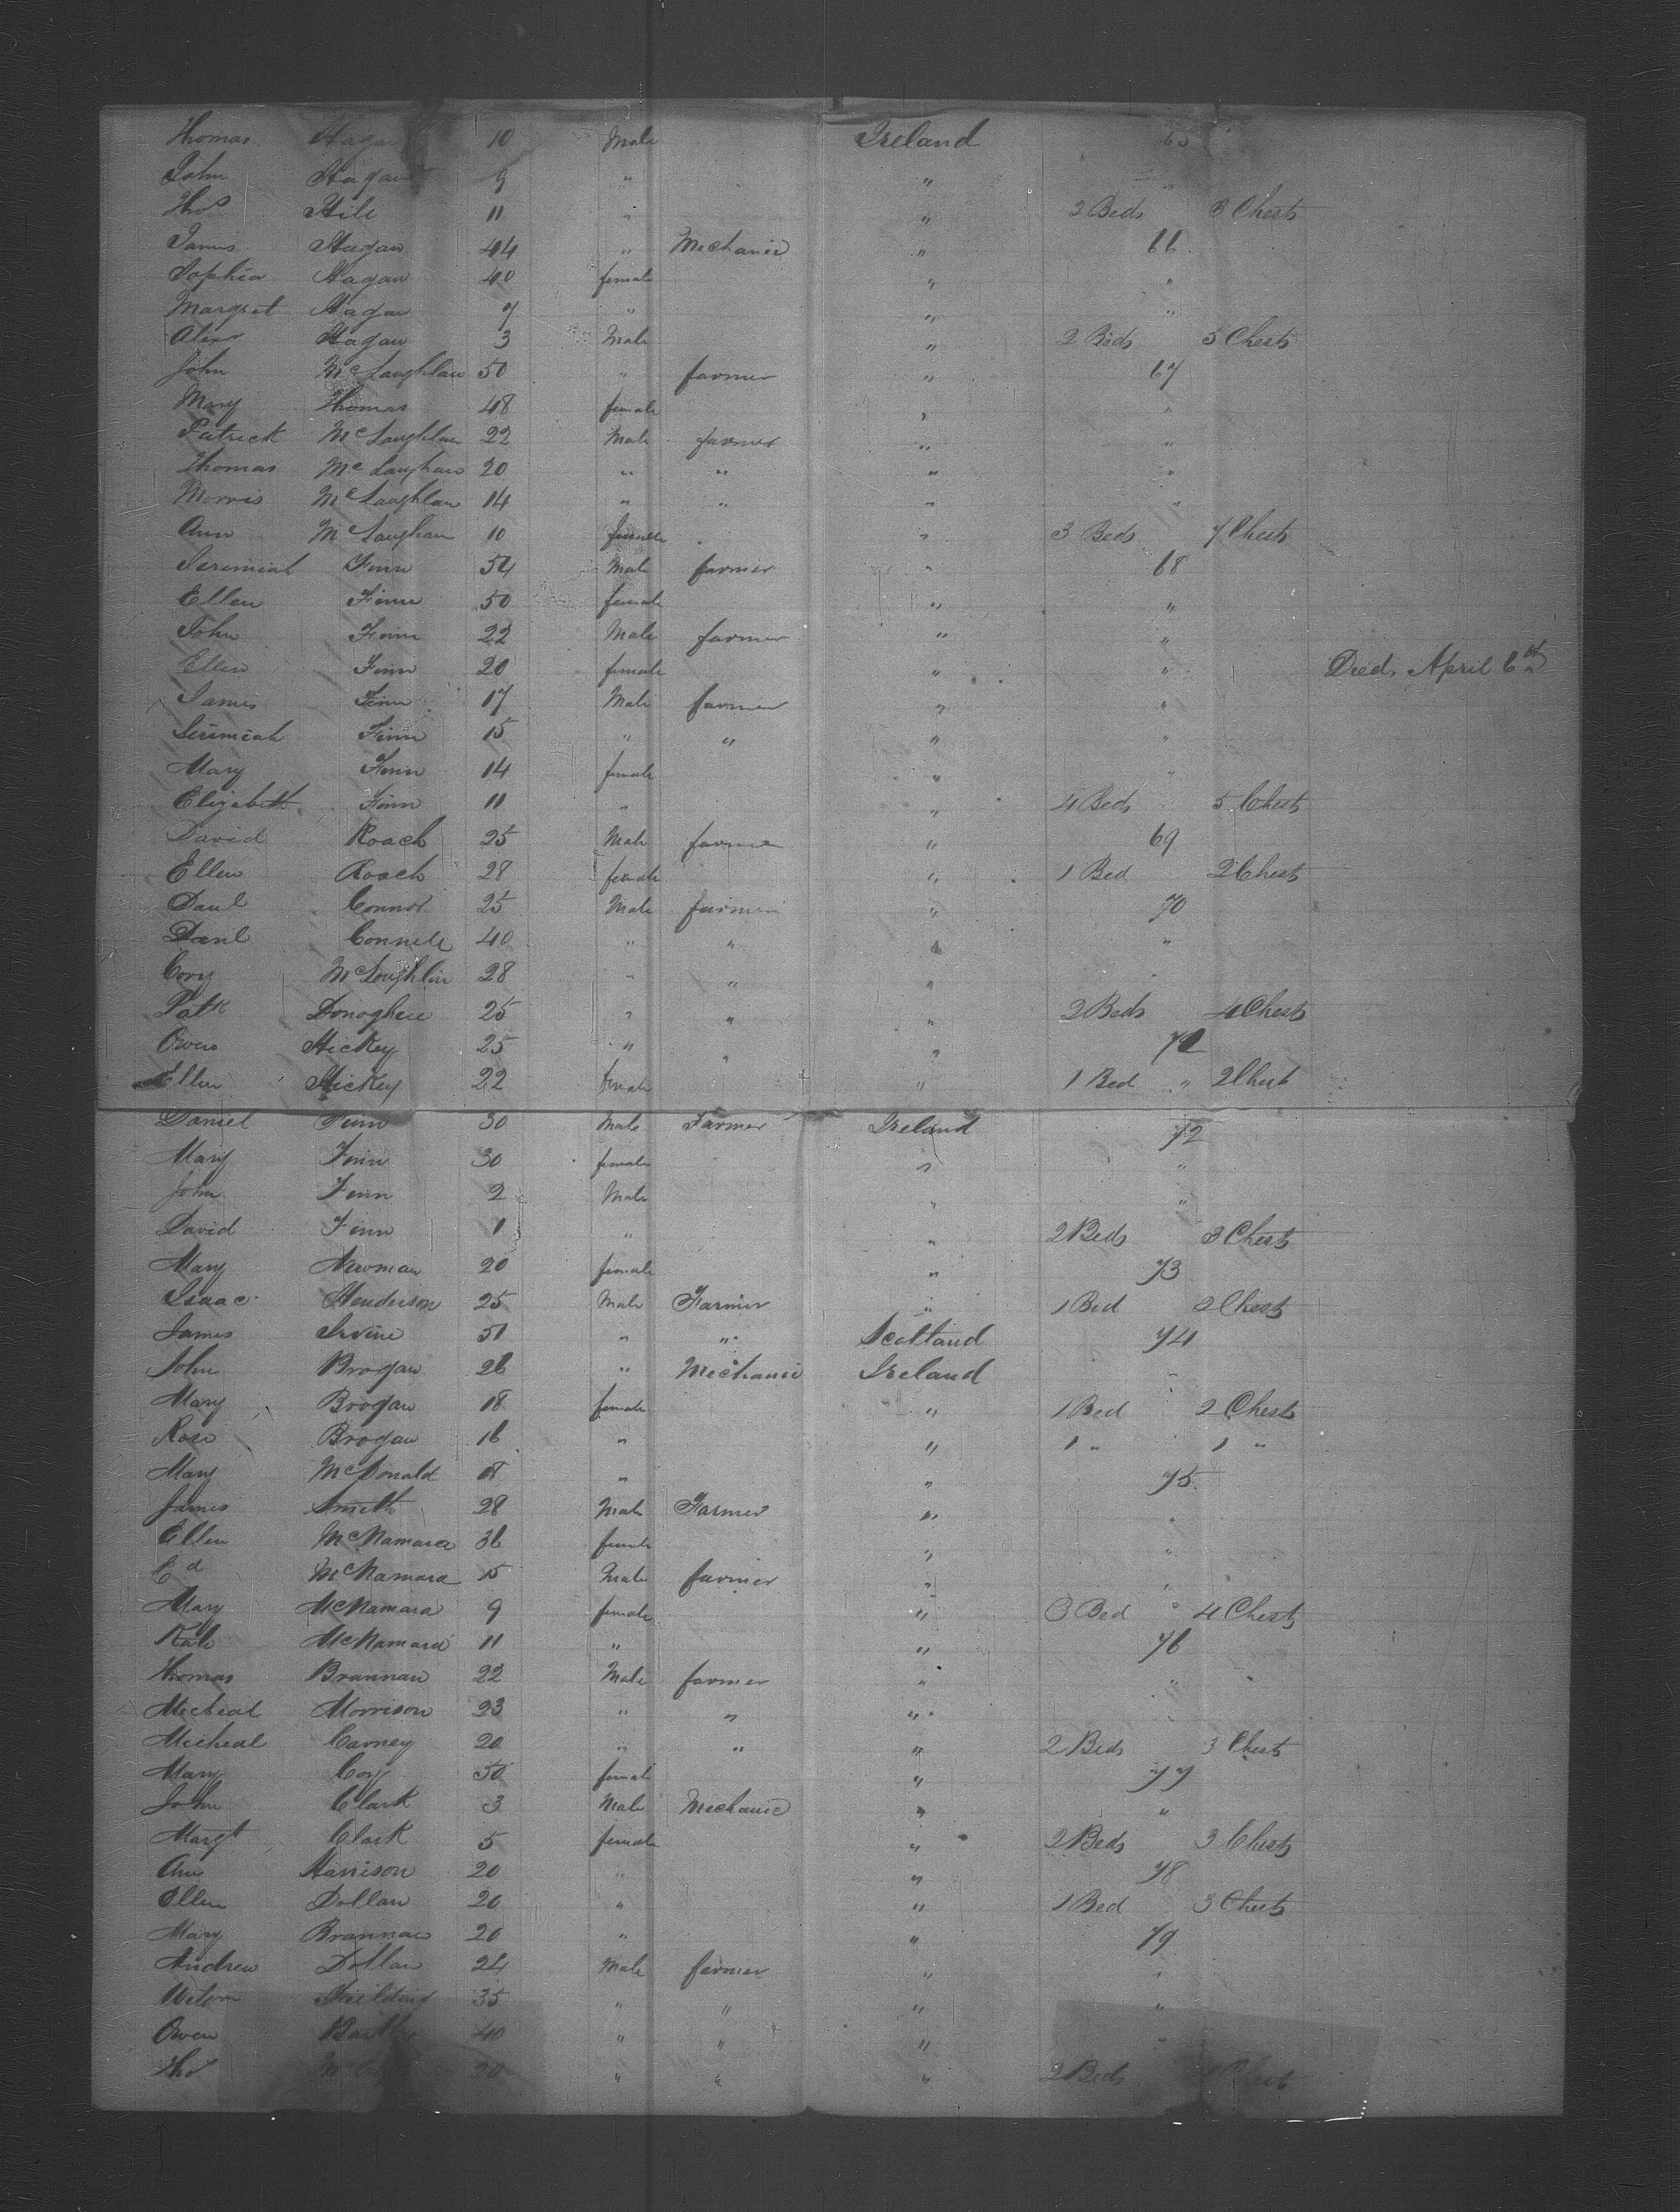 Thomas Haga 10 Male Ireland 65
John Hagan 9 " " "
Thos Hile 11 " " 2 Beds 3 Chests
James Hagan 44 " Mechanic " 66
Sophia Hagan 40 female " "
Margret Hagan 7 " " "
Alexr Hagan 3 Male " 2 Beds 5 Chests
John McLaughlan 50 " farmer " 67
Mary Thomas 48 female " "
Patrick McLaughlan 22 Male farmer " "
Thomas McLaughan 20 " " " "
Morris McLaughlan 14 " " " "
Ann McLaughan 10 female " 3 Beds 7 Chests
Jeremiah Finn 54 Male farmer " 68
Ellen Finn 50 female " "
John Finn 22 Male farmer " "
Ellen Finn 20 female " " Died April 6th
James Finn 17 Male farmer " "
Jerimiah Finn 15 " " " "
Mary Finn 14 female " "
Elizabeth Finn 11 " " 4 Beds 5 Chests
David Roach 25 Male farmer " 69
Ellen Roach 28 female " 1 Bed 2 Chests
Danl Connor 25 Male farmer " 70
Danl Connell 40 " " " "
Cory McLoughlin 28 " " " "
Patk Donoghue 25 " " " 2 Beds 4 Chests
Owen Hickey 25 " " " 71
Ellen Hickey 22 female " 1 Bed " 2 Chest
Daniel Finn 30 Male Farmer Ireland 72
Mary Finn 30 female " "
John Finn 2 Male " "
David Finn 1 " " 2 Beds 3 Chests
Mary Newman 20 female " 73
Isaac Henderson 25 Male Farmer " 1 Bed 2 Chests
James Irvine 51 " " Scotland 74
John Brogan 26 " Mechanic Ireland "
Mary Brogan 18 female " 1 Bed " 2 Chests
Rose Brogan 16 " " 1 " 1 "
Mary McDonald 18 " " 75
James Smith 28 Male Farmer " "
Ellen McNamara 36 female " "
Ed McNamara 15 Male farmer " "
Mary McNamara 9 female " 3 Bed " 4 Chests
Kate McNamara 11 " " 76
Thomas Brannan 22 Male farmer " "
Micheal Morrison 23 " " "
Micheal Carney 20 " " " 2 Beds 3 Chests
Mary Coy 50 female " 77
John Clark 3 Male Mechanic " "
Margt Clark 5 female " 2 Beds 3 Chests
Ann Harrison 20 " " 78
Ellen Dollan 20 " " 1 Bed 3 Chests
Mary Brannan 20 " " 79
Andrew Dollan 24 Male farmer " "
Fielding 35 " " " "
Owen 40 " " " "
Thos 20 " " " 2 Beds Chest